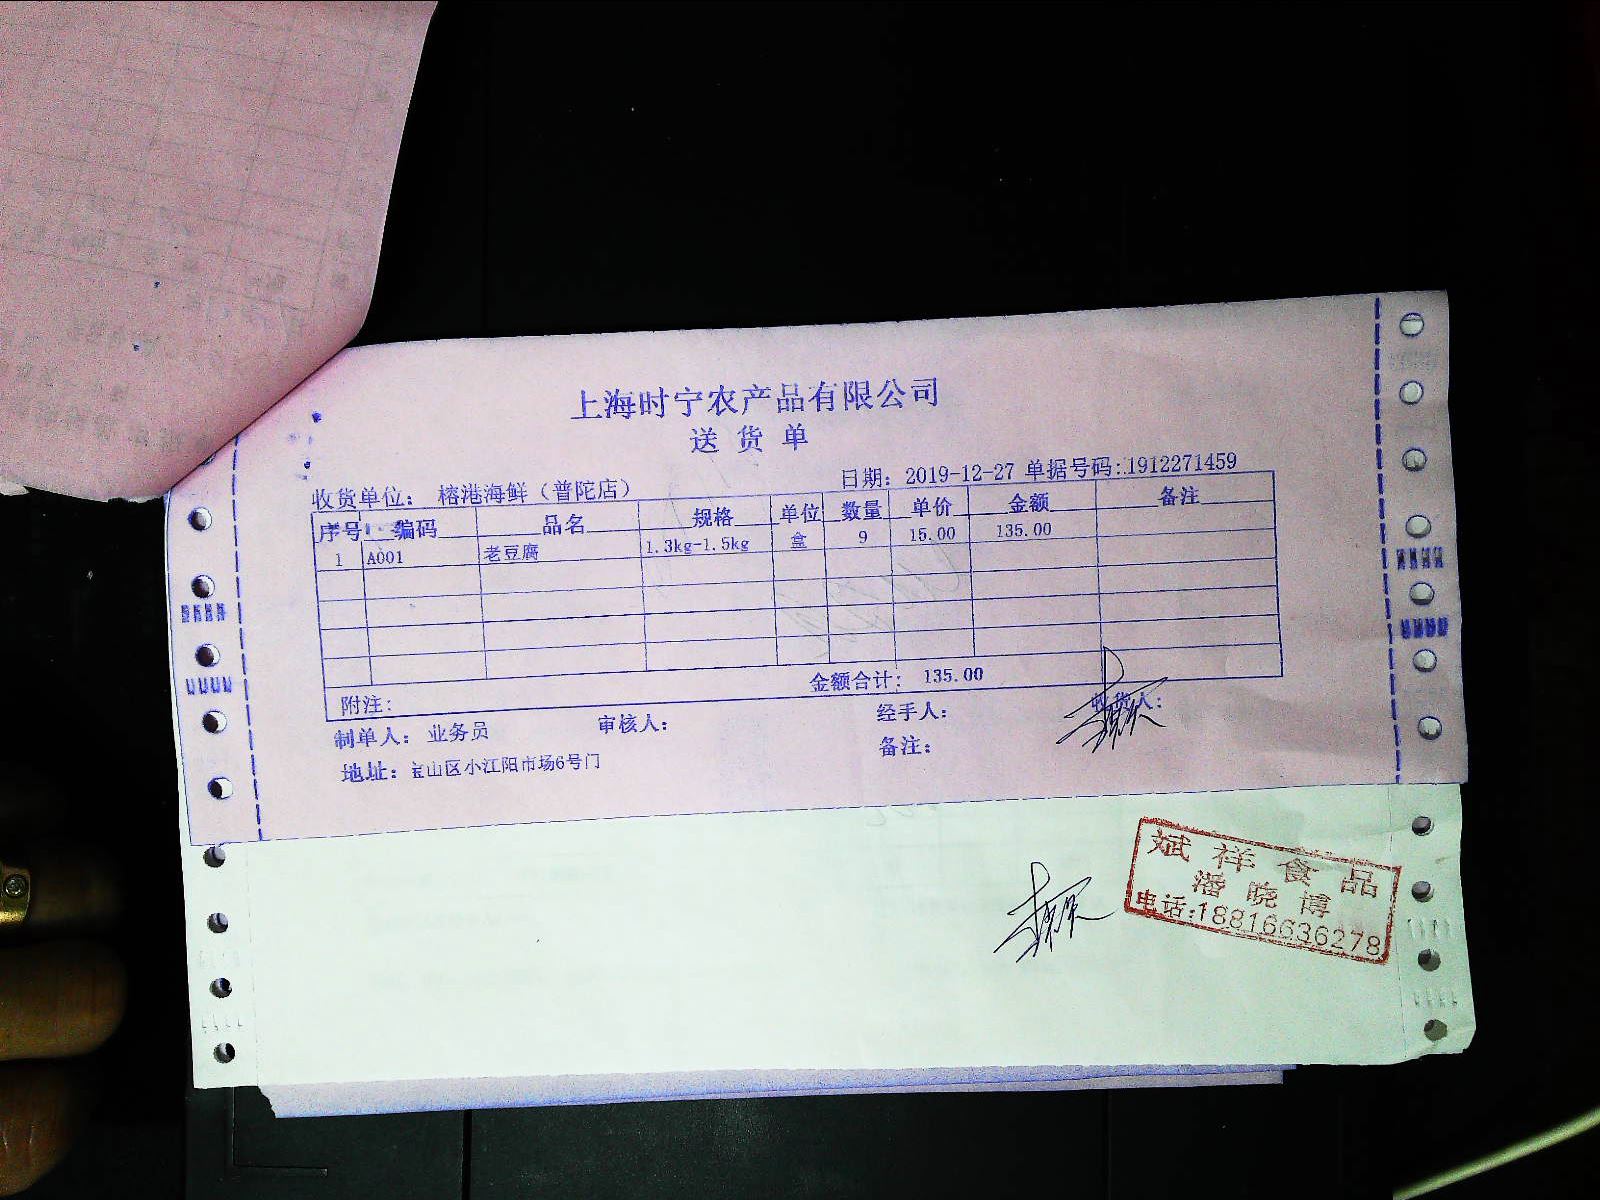 上海时宁农产品有限公司
送货单
收货单位: 榕港海鲜(普陀店) 日期: 2019-12-27 单据号码: 1912271459
序号 编码 品名 规格 单位 数量 单价 金额 备注
1 A001 老豆腐 1.3kg-1.5kg 盒 9 15.00 135.00
金额合计: 135.00
附注:
制单人: 业务员 审核人: 经手人: 收货人:
备注:
地址: 宝山区小江阳市场6号门
斌祥食品
潘晓博
电话:18816636278